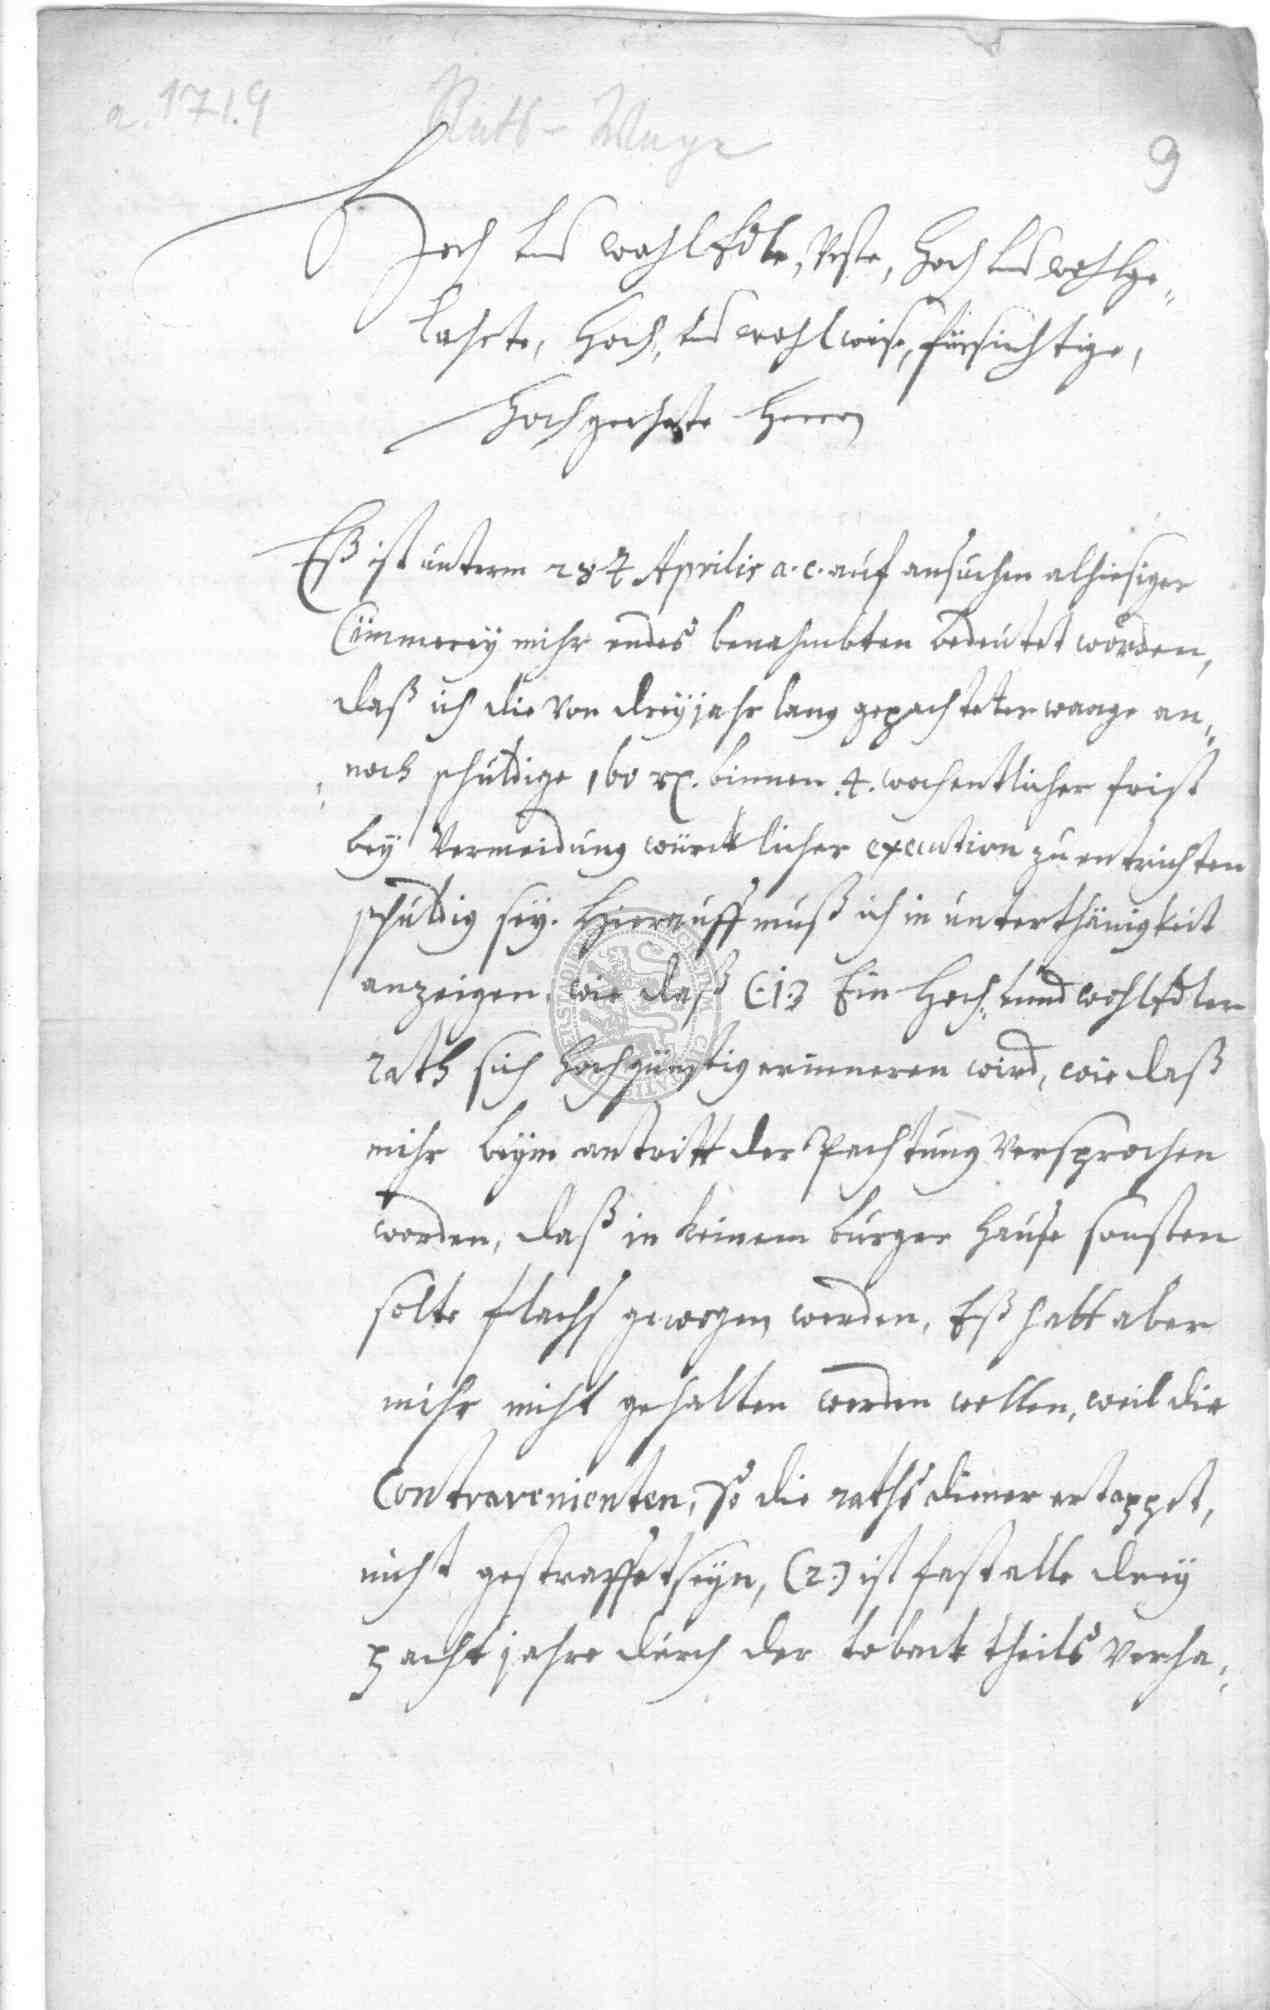 a. 1719
Rats-Wage
9
Hoch und wohlEdle, Veste, Hoch und wohlge„
lahrte, Hoch, und wohlweise, fürsichtige,
Hochgeehrte Herren
Eß ist unterm 28t Aprilis a. c. auf ansuchen alhiesiger
Cämmerey mihr endes benahmbten bedeutet worden,
daß ich die von drey jahr lang gepachteter waage an„
noch schuldige 160 rx. binnen .4. wochentlicher frist
bey Vermeidung würcklicher execution zu entrichten
schuldig sey. Hierauff muß ich in unterthänigkeit
anzeigen, wie daß (:1:) Ein Hoch, und wohlEdler
rath sich hochgünstig erinneren wird, wie daß
mihr beym antritt der Pachtung Versprochen
worden, daß in keinem burger Hause sonsten
solte flachs gewogen werden, Eß hatt aber
mihr nicht gehalten werden wollen, weil die
Contravenienten, so die raths diener ertappet,
nicht gestraffet seyn, (2.) ist fast alle drey
pacht jahre durch der toback theils Verha„